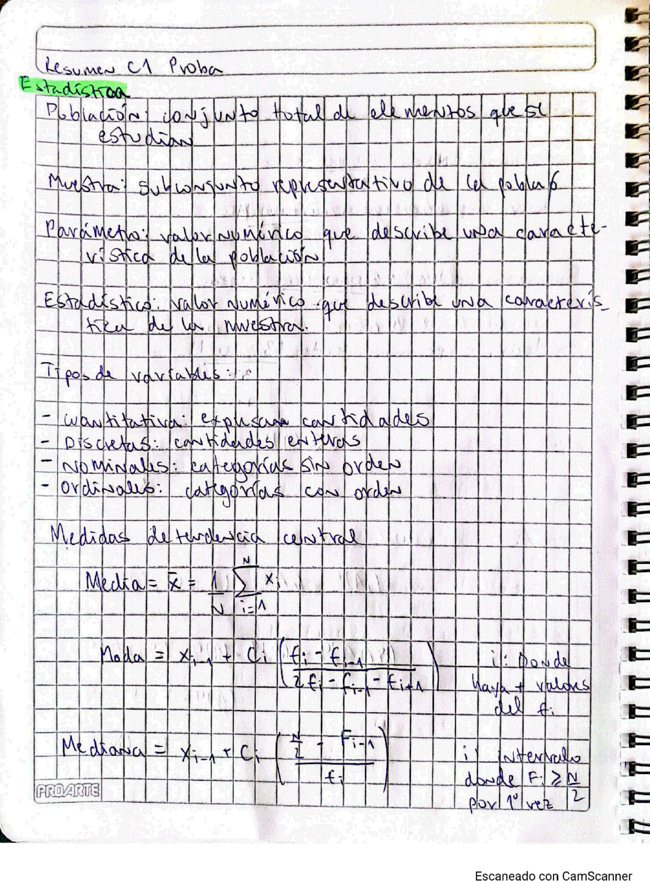 Resumen C1 Proba
Estadística
Población: conjunto total de elementos que se
estudian
Muestra: subconjunto representativo de la poblaº
Parámetro: valor numérico que describe una caracte-
rística de la población
Estadístico: valor numérico que describe una caracterís-
tica de la muestra.
Tipos de variables:
- cuantitativa: expresan cantidades
- Discretas: cantidades enteras
- Nominales: categorías sin orden
- Ordinales: categorías con orden
Medidas de tendencia central
Media = x̄ = 1/N ∑_{i=1}^{N} x_i
Moda = x_{i-1} + C_i ( (f_i - f_{i-1}) / (2f_i - f_{i-1} - f_{i+1}) ) i: Donde
haya + valores
del f_i
Mediana = x_{i-1} + C_i ( (N/2 - F_{i-1}) / f_i ) i: intervalo
donde F_i ≥ N/2
por 1º vez
PROARTE
Escaneado con CamScanner